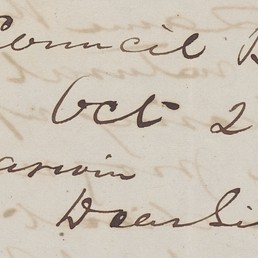 Council B
Oct 2
arwin
Dear Si